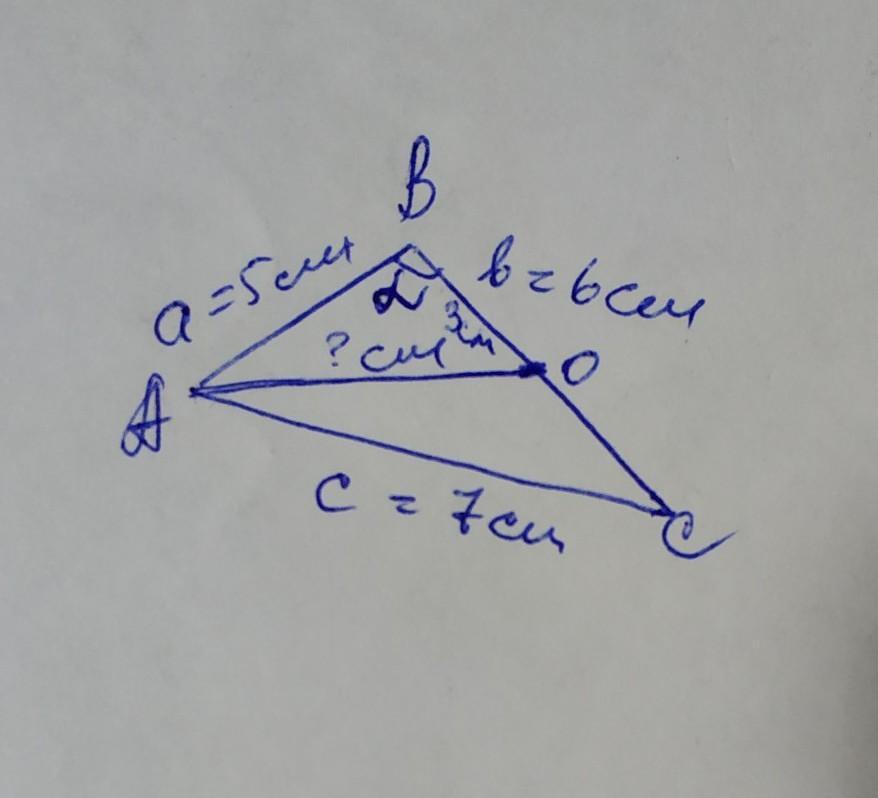 B
a = 5 см
b = 6 см
α
3 см
? см
O
A
c = 7 см
C